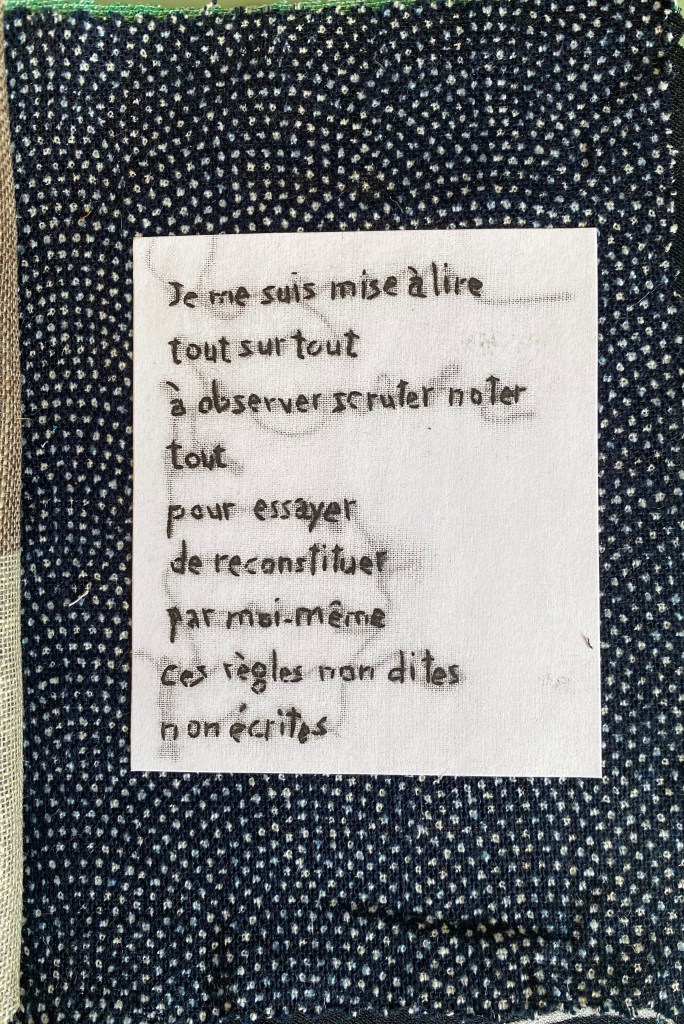 Je me suis mise à lire
tout sur tout
à observer scruter noter
tout
pour essayer
de reconstituer
par moi-même
ces règles non dites
non écrites